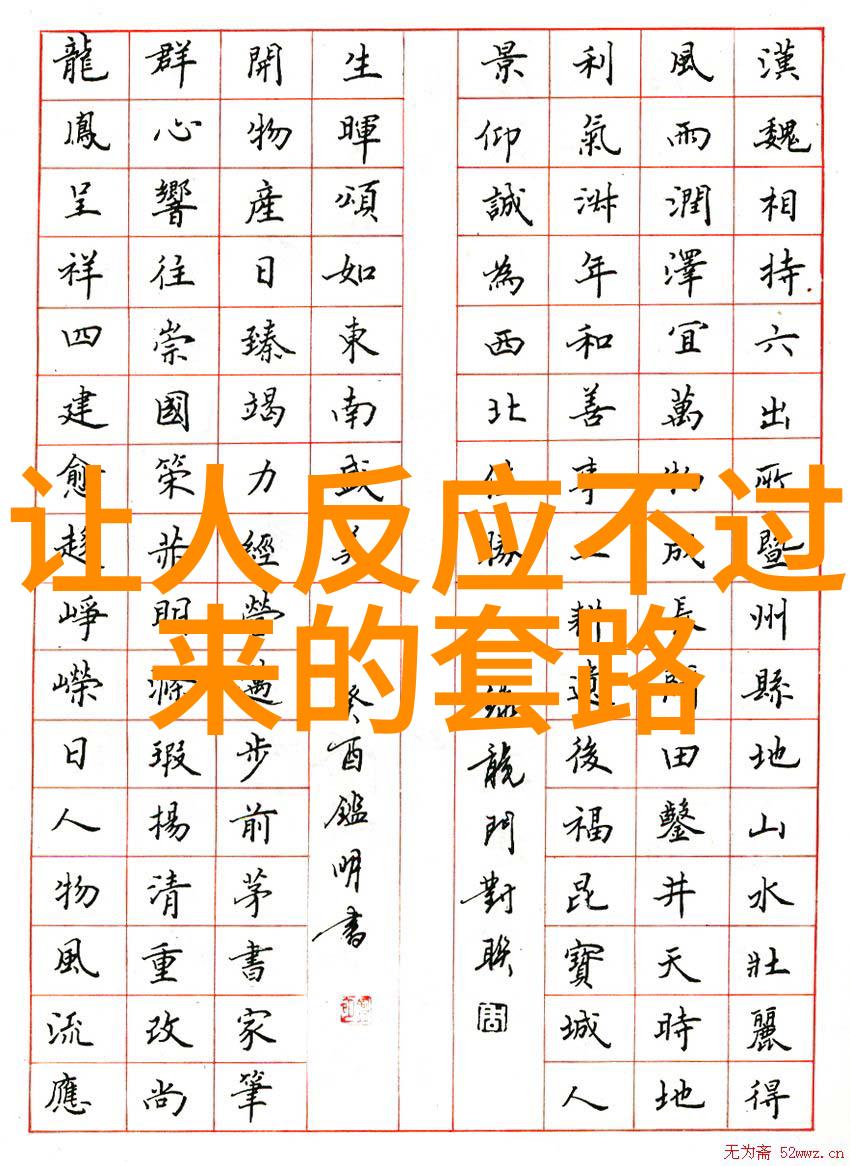 让人反应不过
来的套路
漢魏相持六出所暨州縣地山水壯麗得
風雨潤澤宜萬物成長田鑿井天時地
利氣淑年和善事耕遺後福昆寶城人
景仰誠為西北勝
龍門對聯
龍鳳呈祥四建愈趨崢嶸日人物風流應
群心響往崇國策明滌瑕揚清重改尚
開物產日臻竭力經營邁步前茅書家筆
生暉頌如東南盛美
癸酉鑑明書
无为斋 52wwz.cn